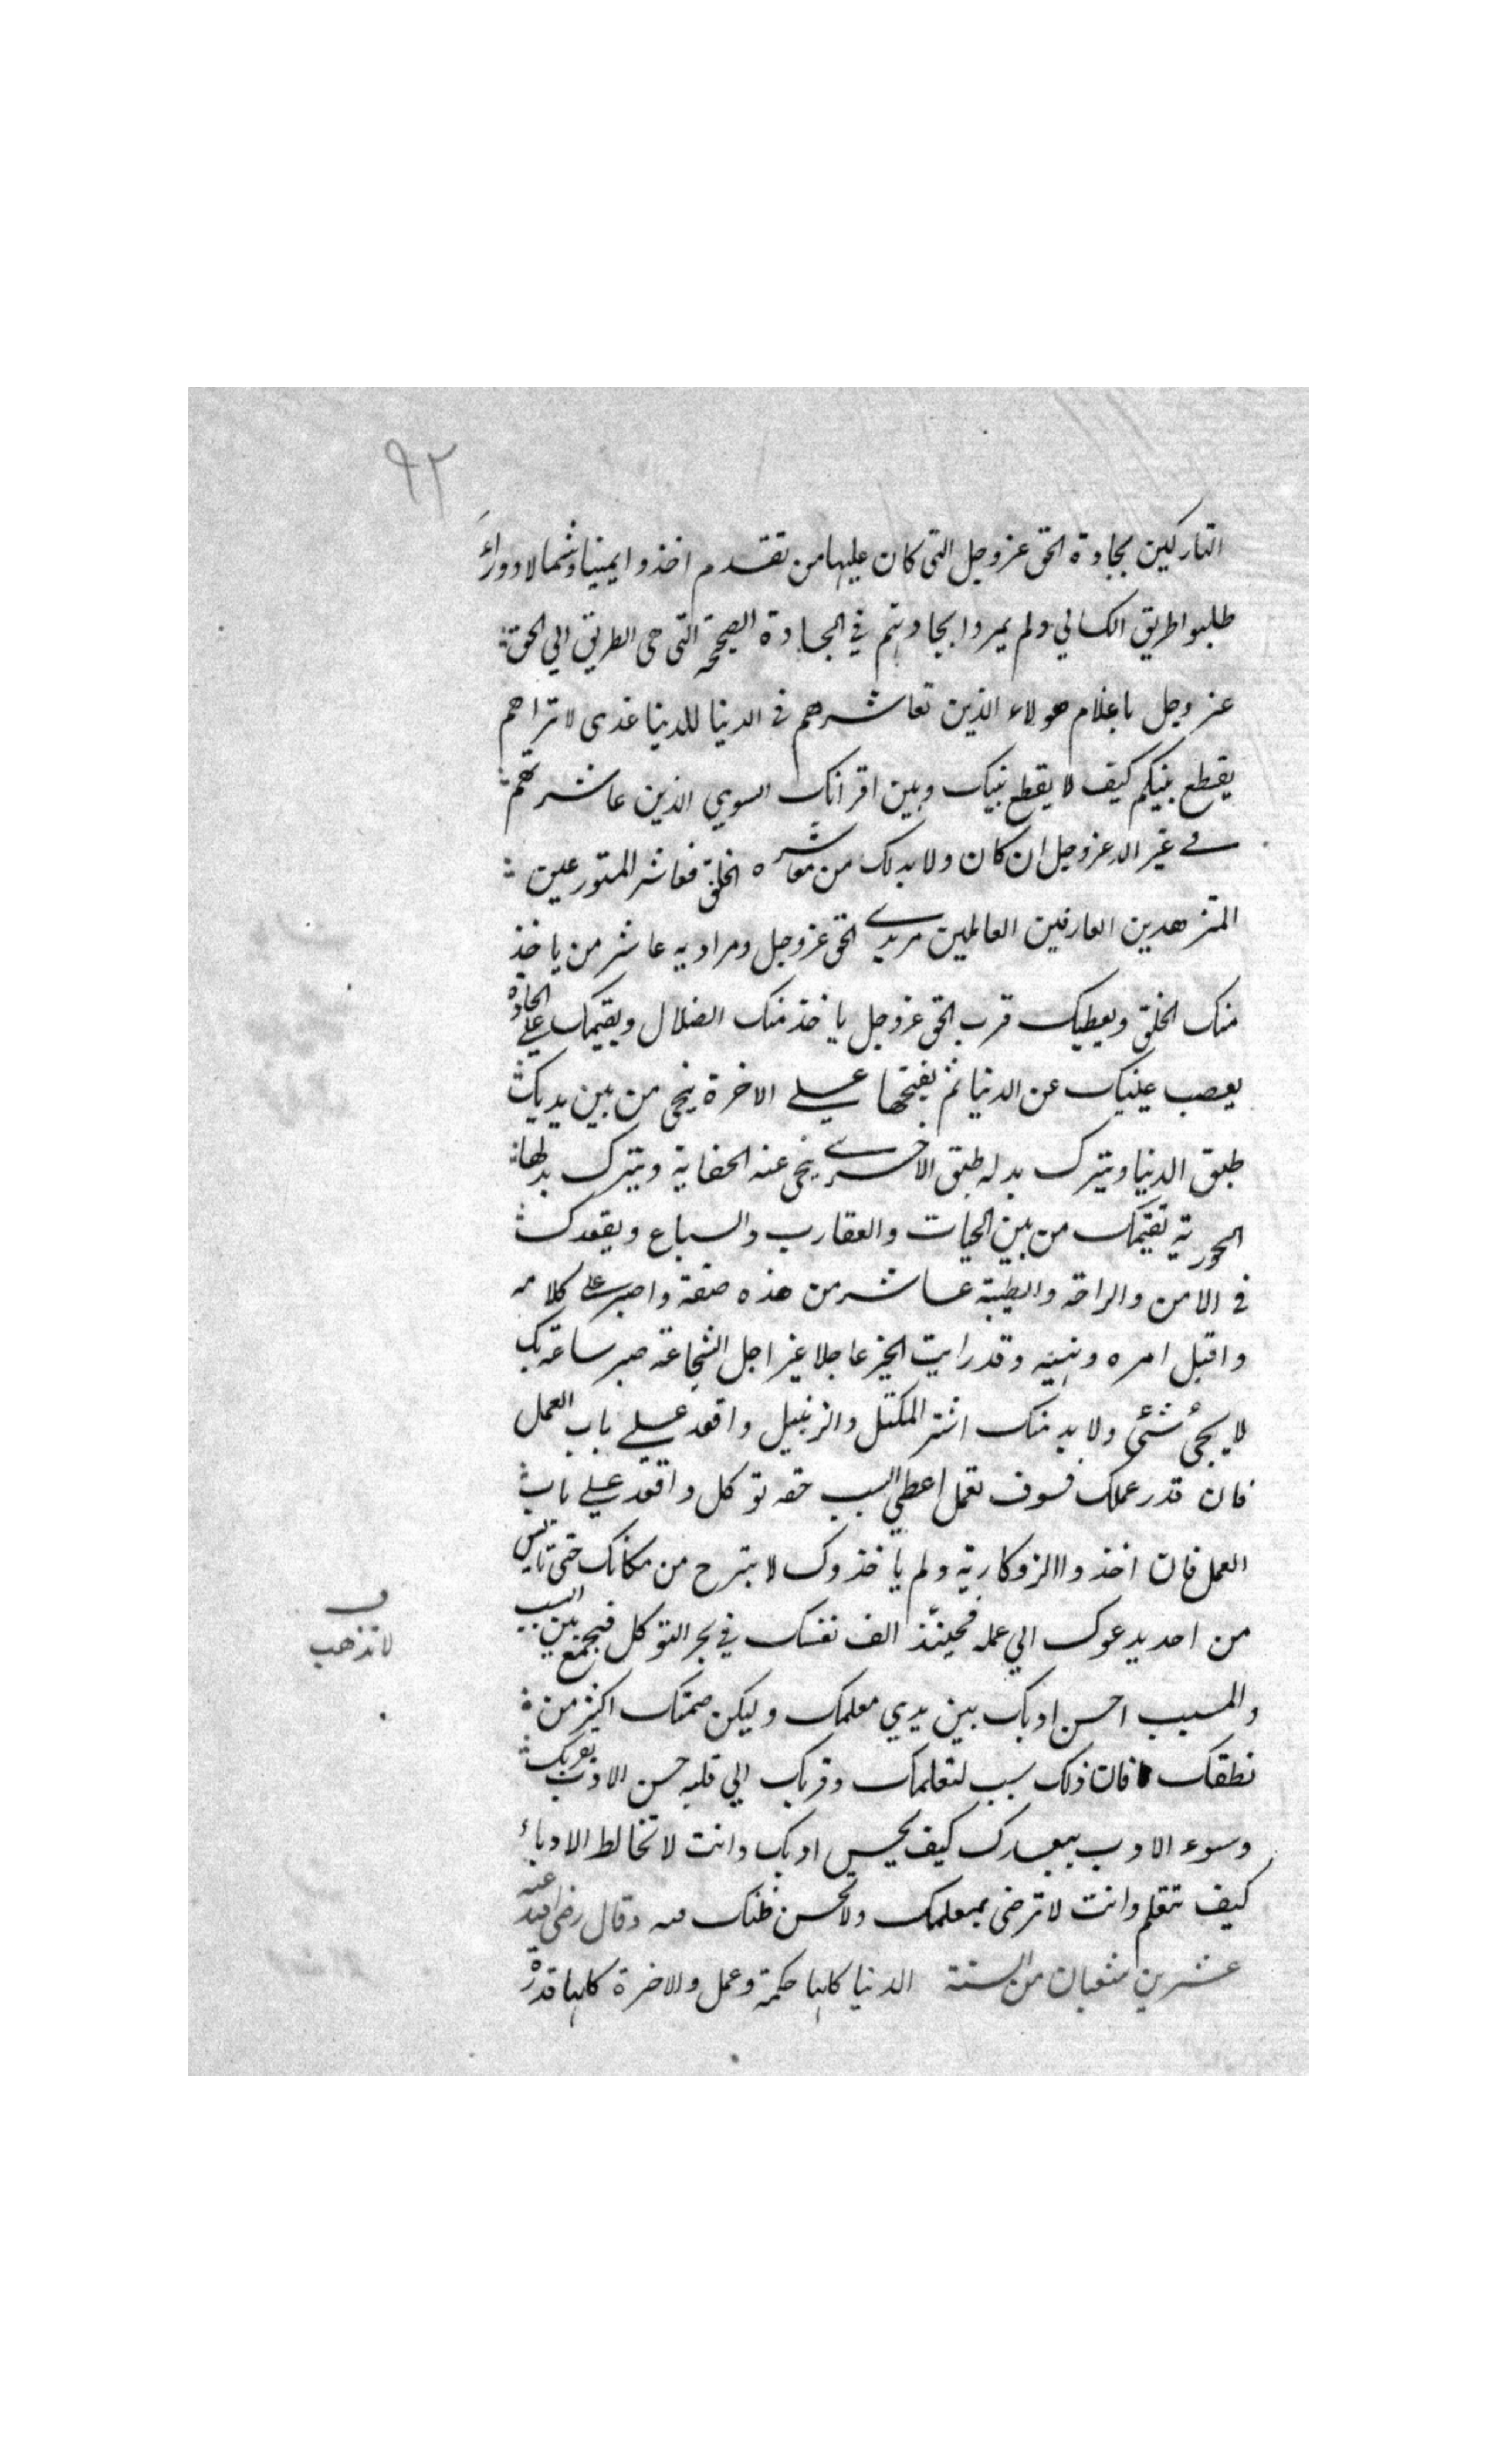 ٩٢
التاركين بجادة الحق عزوجل التى كان عليها من تقدم اخذوا يمينا وشمالا ووراء
طلبوا طريق الكسالي ولم يمروا بجادتهم في الجادة الصحيحة التى هى الطريق الي الحق
عزوجل ياغلام هولاء الذين تعاشرهم في الدنيا للدنيا غدى لا تراهم
يقطع بينكم كيف لا يقطع بينك وبين اقرانك السوي الذين عاشرتهم
في غير الله عزوجل ان كان ولابد لك من معاشرة الخلق فعاشر المتورعين
المتزهدين العارفين العاملين مريدي الحق عزوجل ومراديه عاشر من ياخذ
منك الخلق ويعطيك قرب الحق عزوجل ياخذ منك الضلال ويقيمك علي الجادة
يعصب عينيك عن الدنيا ثم يفتحها علي الاخرة ينحى من بين يديك
طبق الدنيا ويترك بدله طبق الاخري ينحى عنه الحفاية ويترك بدلها
الحورية تقيمك من بين الحيات والعقارب والسباع ويقعدك
في الامن والراحة والطيبة عاشر من هذه صفة واصبر علي كلامه
واقبل امره ونهيه وقد رايت الخير عاجلا غير اجل الشجاعة صبر ساعة بك
لا يجئ شئ ولابد منك اشتر المكتل والزنبيل واقعد علي باب العمل
فان قدر عملك فسوف تعمل اعطي السبب حقه توكل واقعد علي باب
العمل فان اخذوا الزوكارية ولم ياخذوك لا تبرح من مكانك حتى تايس
من احد يدعوك الي عمله فحينئذ الف نفسك في بحر التوكل فيجمع بين السبب
والمسبب احسن ادبك بين يدي معلمك وليكن صمتك اكثر من
نطقك فان ذلك سبب لتعلمك وقربك الي قلبه حسن الادب يقربك
وسوء الادب يبعدك كيف يحسن ادبك وانت لا تخالط الادباء
كيف تتعلم وانت لا ترضى بمعلمك ولا تحسن ظنك فيه وقال رضى الله عنه
عشرين شعبان من السنة الدنيا كلها حكمة وعمل والاخرة كلها قدرة
ف
لا تذهب